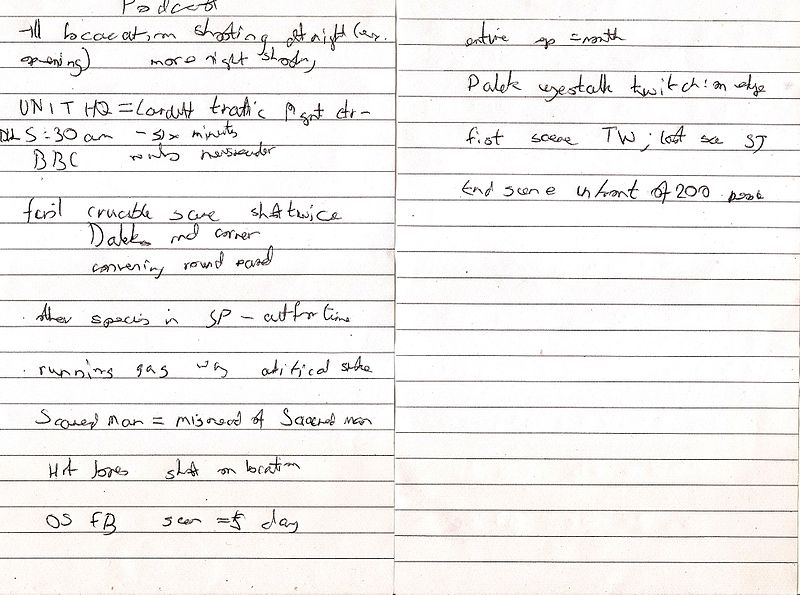 Podcast
All location shooting at night (ex.
opening) more night shoots
UNIT HQ = Cardiff traffic mgmt ctr -
5:30 am - six minutes
BBC newsreader
first crucible scene shot twice
Daleks rnd corner
convening round
other species in SP - cut for time
running gag
Scared man = misread of Sacred man
Hrt Jones shot on location
OS FB scen = 5 day
entire ep = month
Dalek eyestalk twitch: on edge
first scene TW; last sce SJ
End scene in front of 200